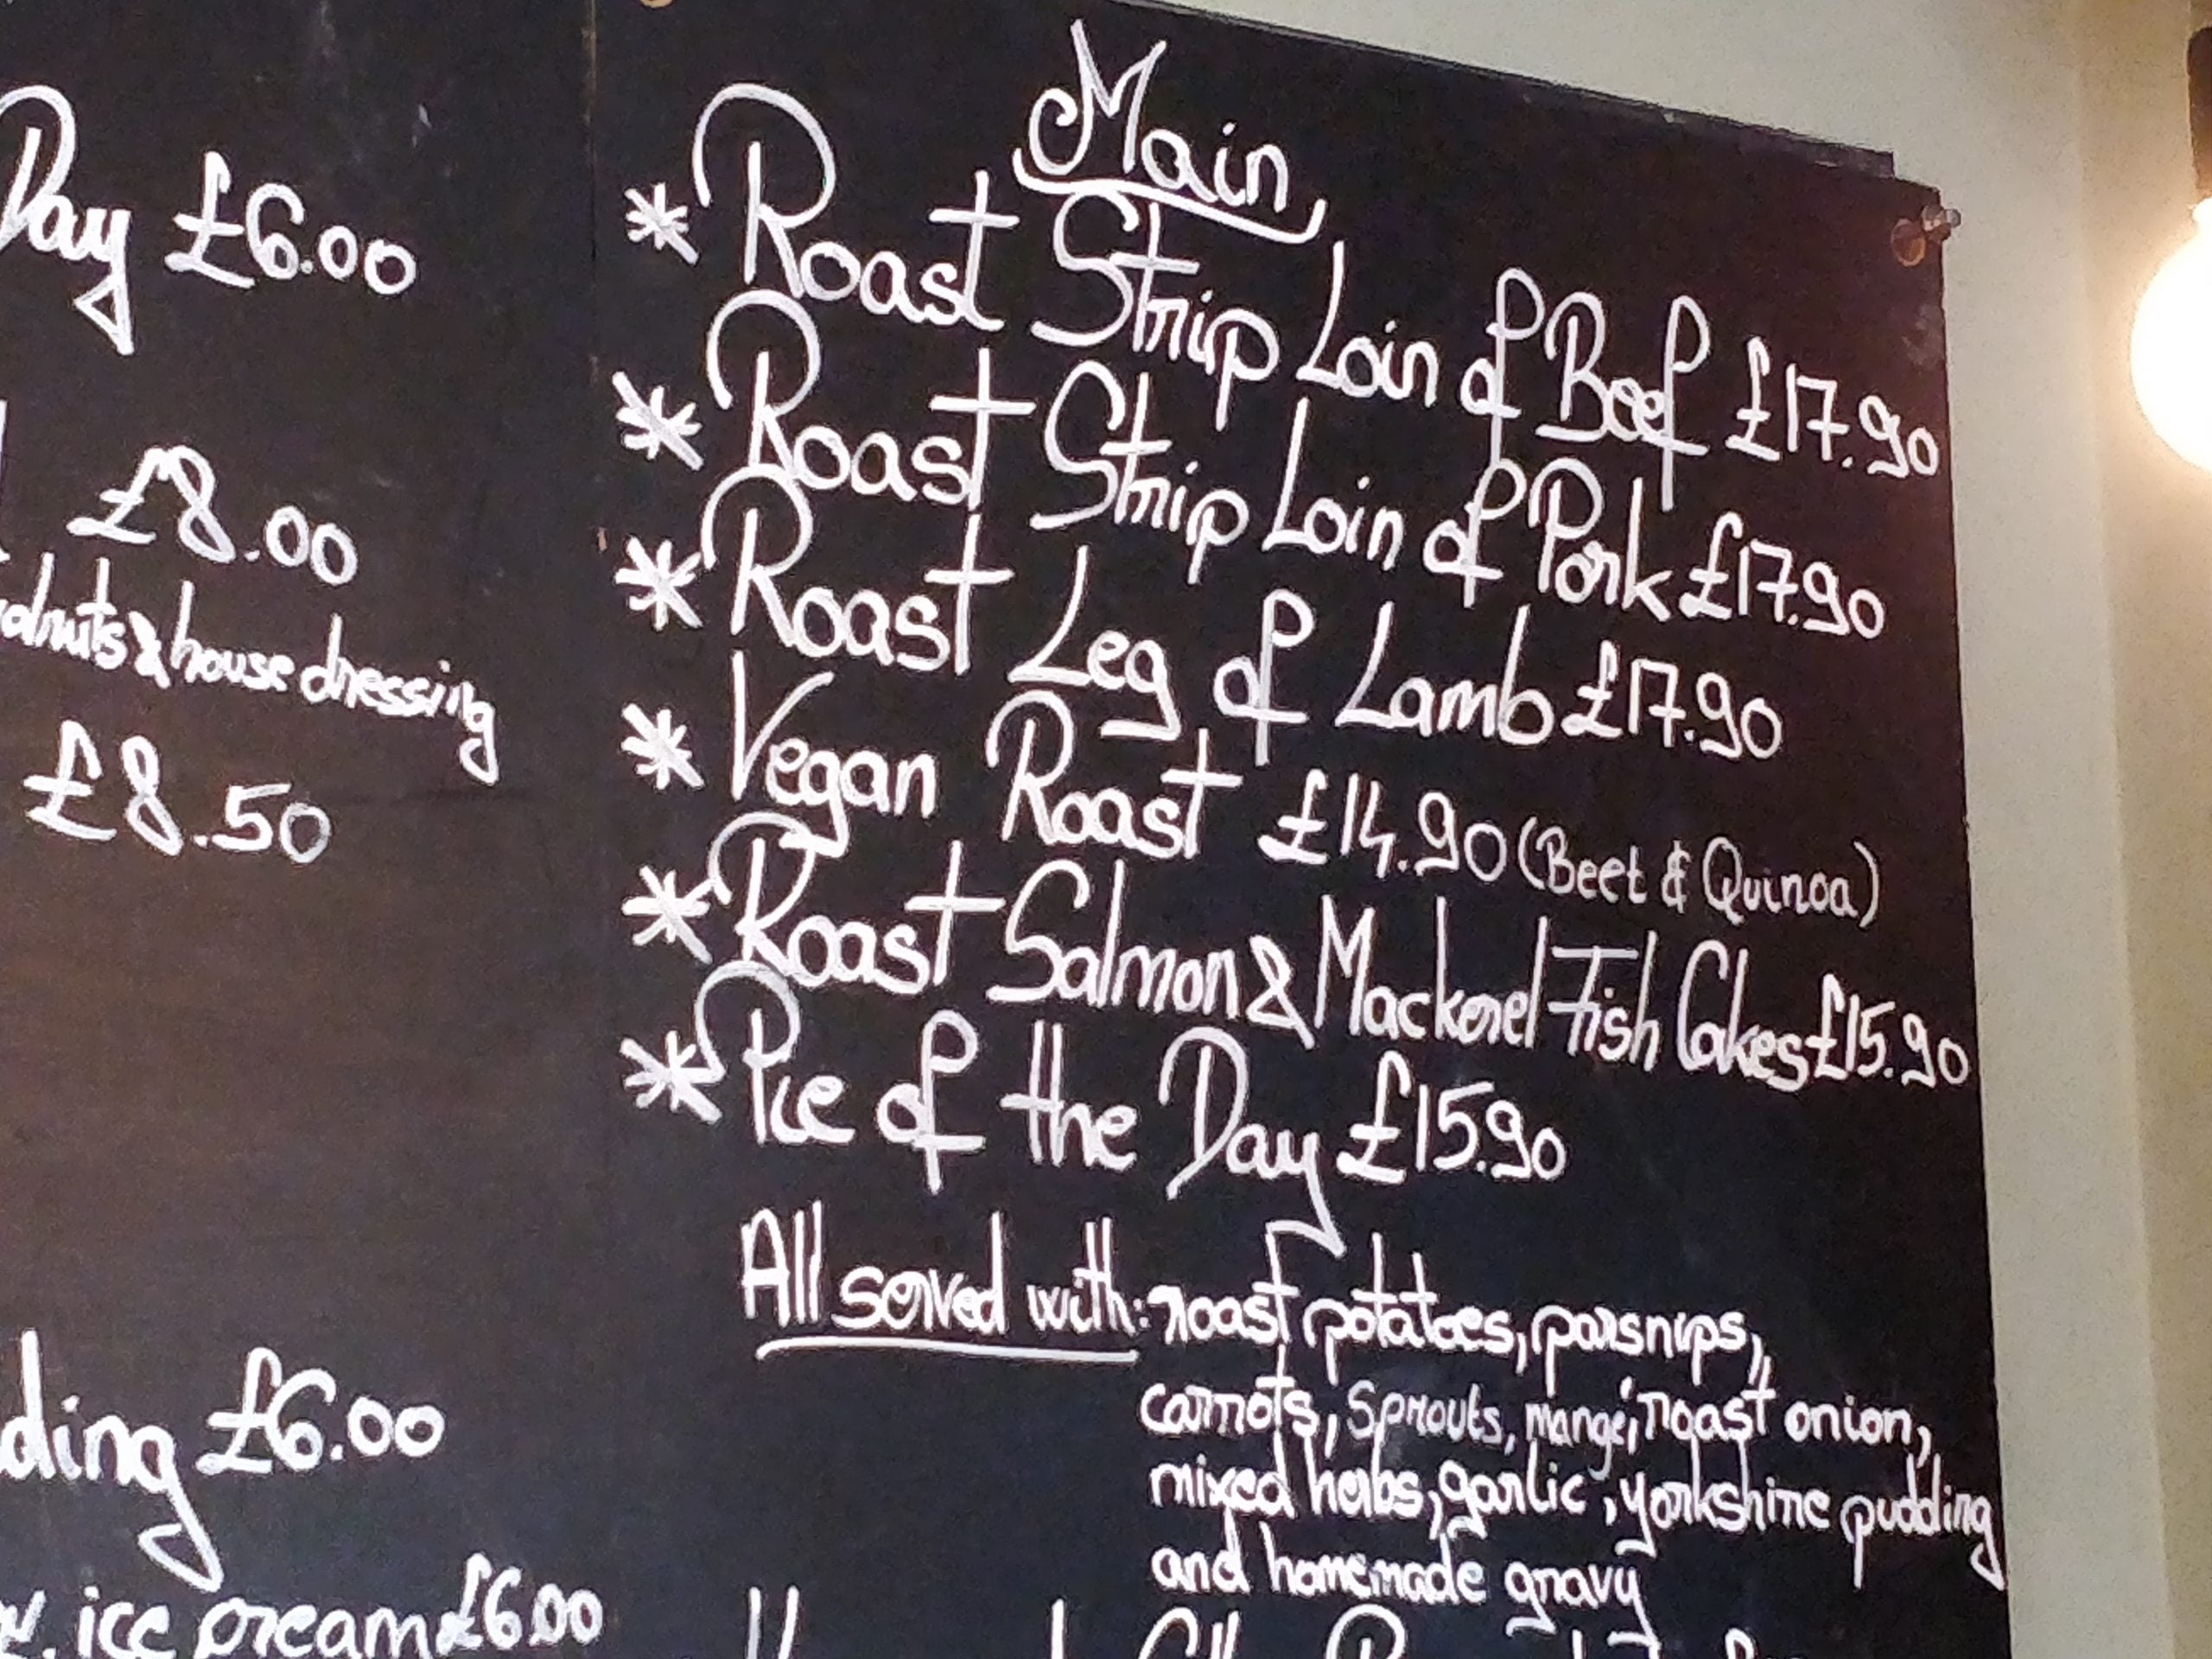 Day £6.00
£8.00
& house dressing
£8.50
£6.00
ice cream £6.00
Main
* Roast Strip Loin of Beef £17.90
* Roast Strip Loin of Pork £17.90
* Roast Leg of Lamb £17.90
* Vegan Roast £14.90 (Beet & Quinoa)
* Roast Salmon & Mackerel Fish Cakes £15.90
* Pie of the Day £15.90
All served with: roast potatoes, parsnips,
carrots, sprouts, mange, roast onion,
mixed herbs, garlic, yorkshire pudding
and homemade gravy